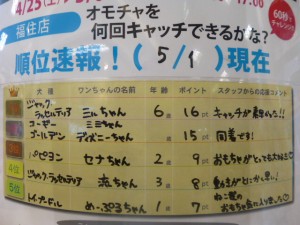 4/25(土)
17:00
福住店
オモチャを
何回キャッチできるかな?
60秒
チャレンジ
順位速報!( 5/1 )現在
犬種 ワンちゃんの名前 年齢 ポイント スタッフからの応援コメント
ジャックラッセルテリア ミルちゃん 6歳 16pt キャッチが素早かった!!
コーギー ミミちゃん
ゴールデン ディズニーちゃん 歳 15pt 同着です!
4位 パピヨン セナちゃん 2歳 9pt おもちゃがとっても大好き
5位 ジャックラッセルテリア 流ちゃん 3歳 8pt 動きがとにかく早い!
トイプードル めーぷるちゃん 1歳 7pt ねこ型のおもちゃ気に入りました♡